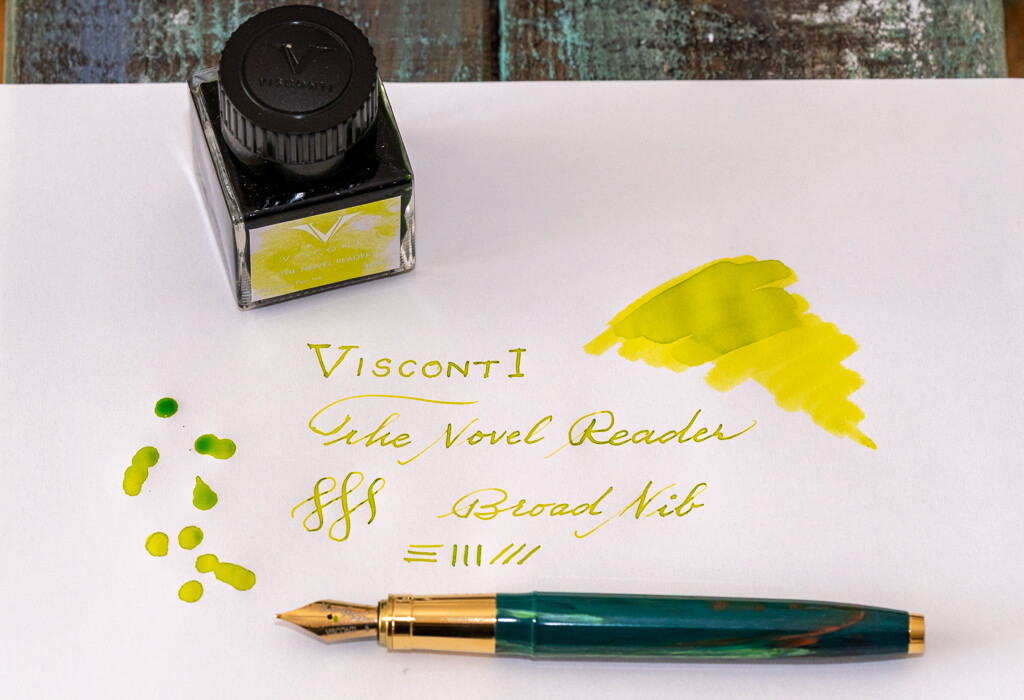 V
VISCONTI
V
VISCONTI
THE NOVEL READER
VISCONTI
The Novel Reader
Broad Nib
VISCONTI